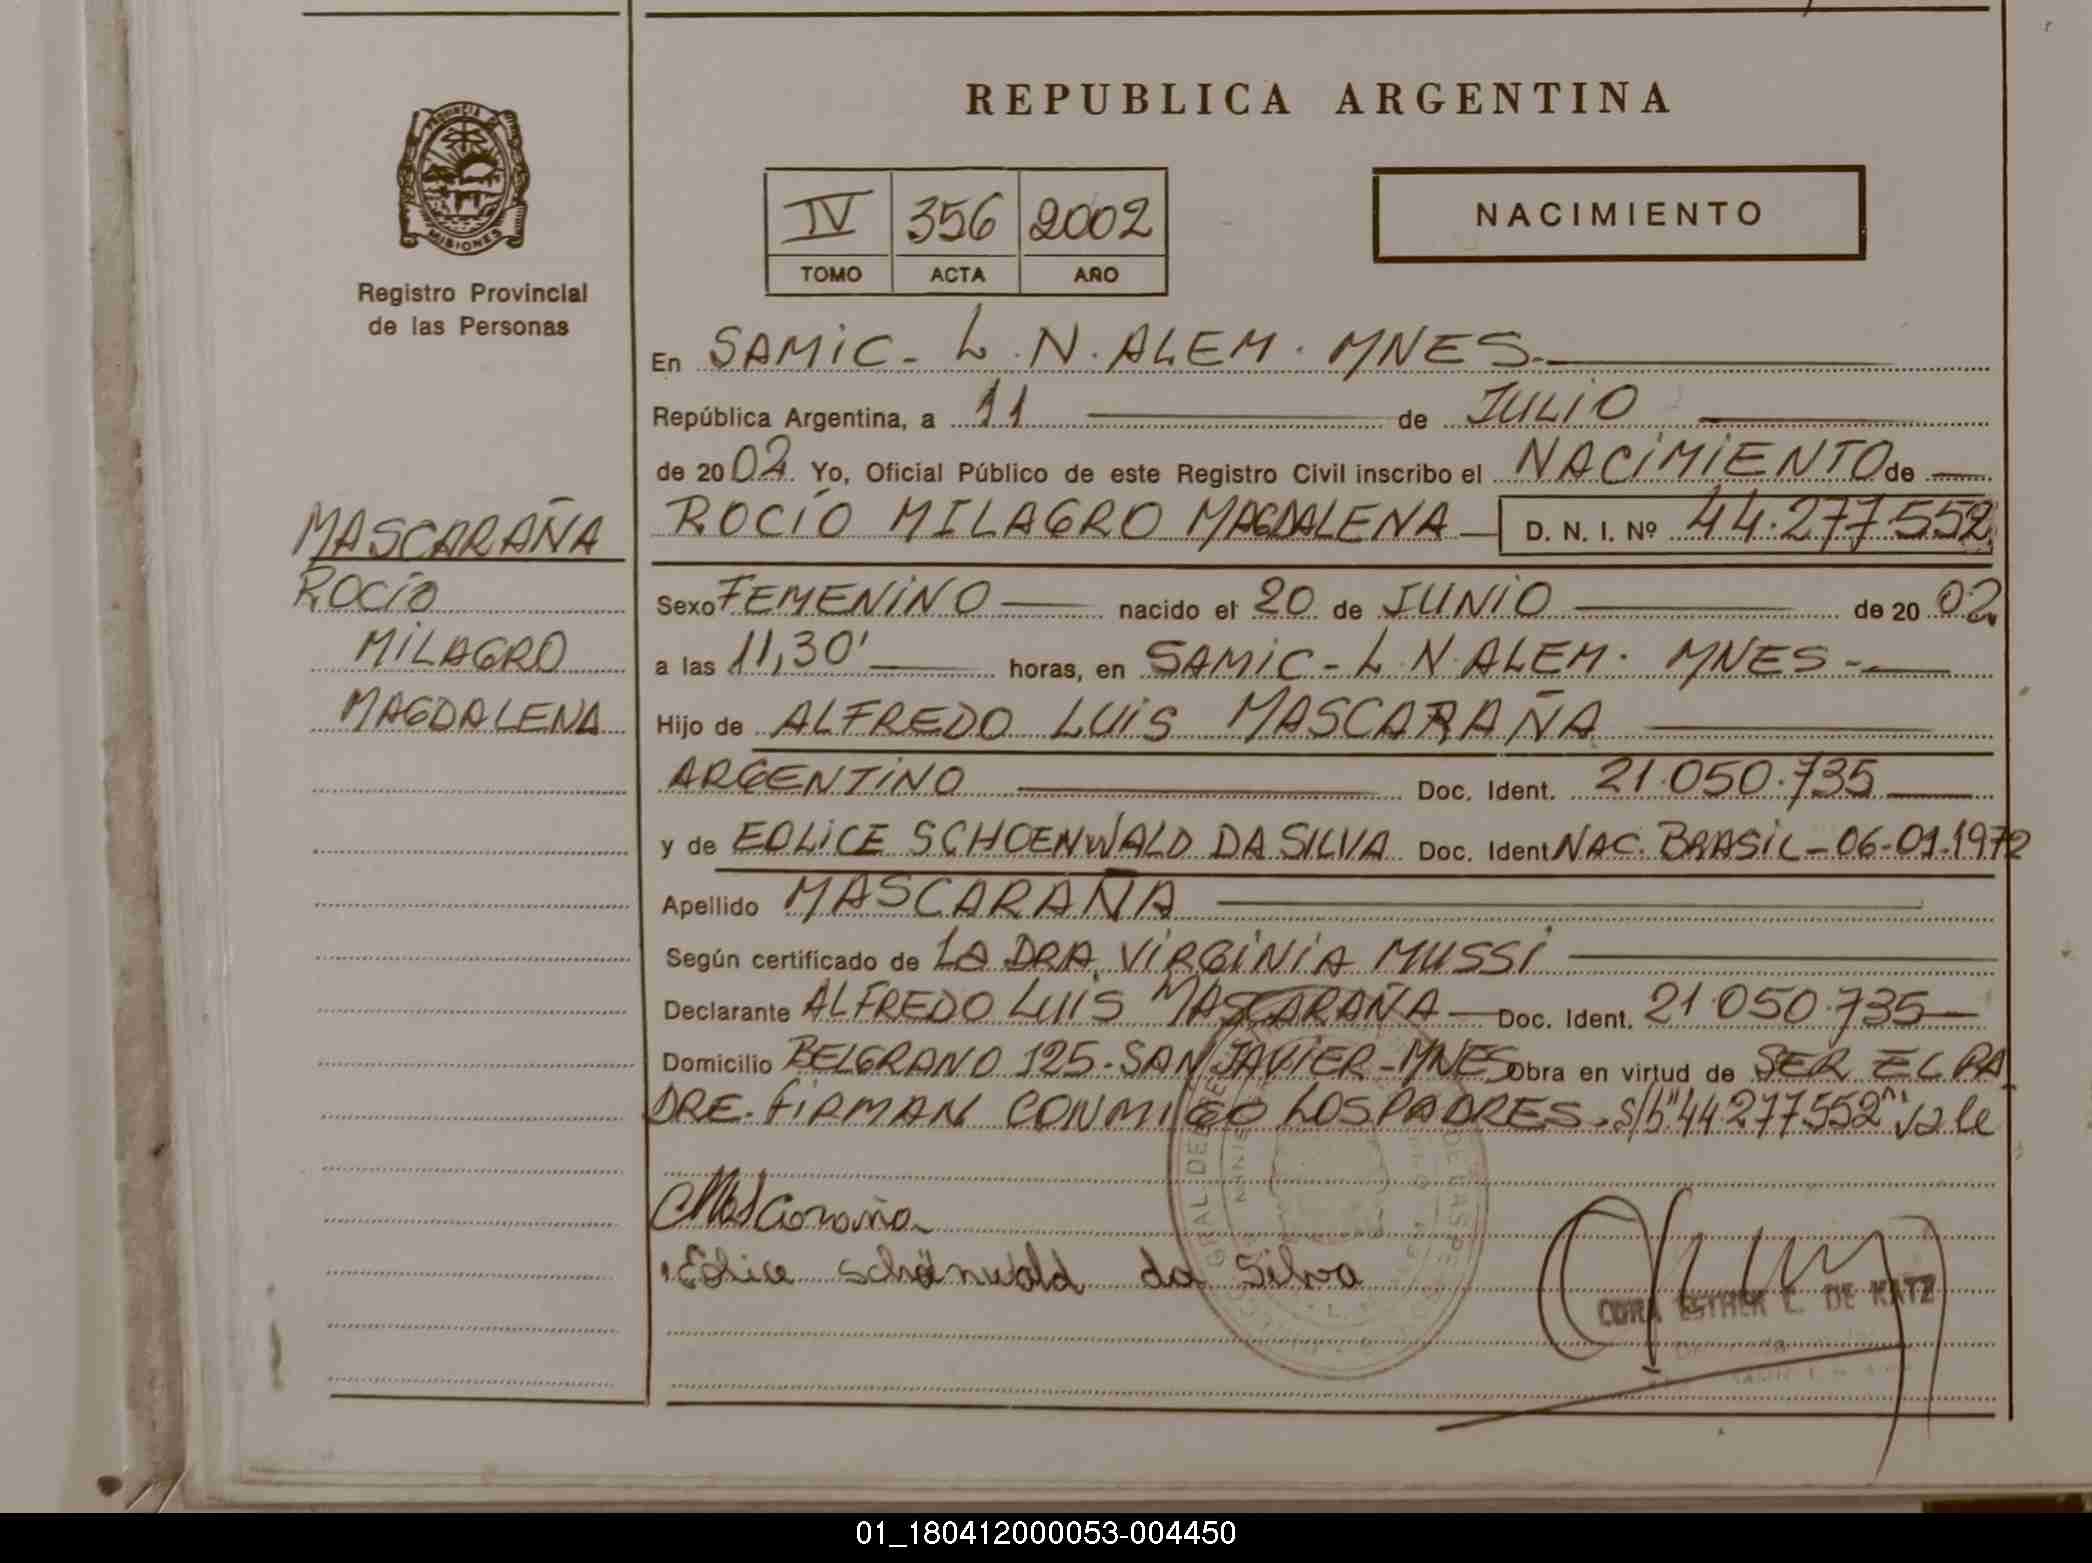 REPUBLICA ARGENTINA
PROVINCIA DE
MISIONES
Registro Provincial
de las Personas
IV 356 2002
TOMO ACTA AÑO
NACIMIENTO
En SAMIC - L.N. ALEM. MNES.
República Argentina, a 11 de JULIO
de 2002. Yo, Oficial Público de este Registro Civil inscribo el NACIMIENTO de
ROCÍO MILAGRO MAGDALENA D. N. I. Nº 44.277.552
MASCARAÑA
ROCÍO
MILAGRO
MAGDALENA
Sexo FEMENINO nacido el 20 de JUNIO de 2002
a las 11,30' horas, en SAMIC - L.N. ALEM. MNES -
Hijo de ALFREDO LUIS MASCARAÑA
ARGENTINO Doc. Ident. 21.050.735
y de EDLICE SCHOENWALD DA SILVA Doc. Ident NAC. BRASIL - 06-01-1972
Apellido MASCARAÑA
Según certificado de LA DRA. VIRGINIA MUSSI
Declarante ALFREDO LUIS MASCARAÑA Doc. Ident. 21.050.735
Domicilio BELGRANO 125 - SAN JAVIER - MNES Obra en virtud de SER EL PA
DRE. FIRMAN CONMIGO LOS PADRES. s/b "44277552" vale
Mascaraña
Edlice schönwald da Silva
ESTHER E. DE KATZ
01_180412000053-004450